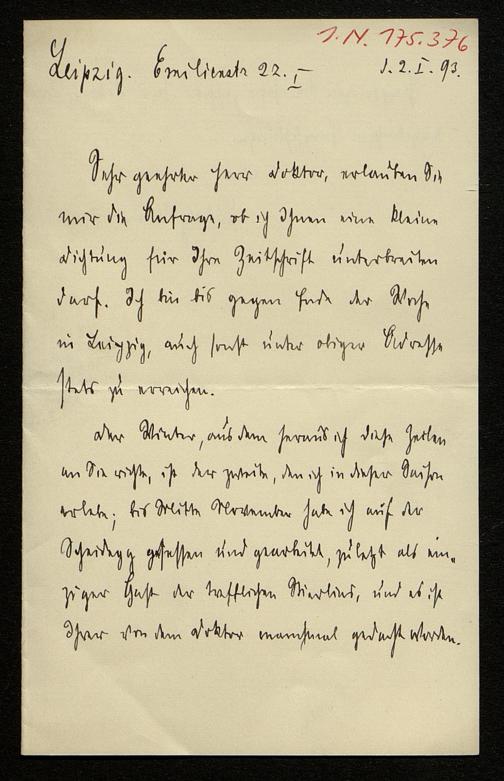 I.N. 175.376
Leipzig. Emilienstr 22. I
d. 2. I. 93.
Sehr geehrter Herr Doktor, erlauben Sie
mir die Anfrage, ob ich Ihnen eine kleine
Dichtung für Ihre Zeitschrift unterbreiten
darf. Ich bin bis gegen Ende der Woche
in Leipzig, auch sonst unter obiger Adresse
stets zu erreichen.
Der Winter, aus dem heraus ich diese Zeilen
an Sie richte, ist der zweite, den ich in dieser Saison
erlebe; bis Mitte November habe ich auf der
Scheidegg gesessen und gearbeitet, zuletzt als ein-
ziger Gast der trefflichen Stierlins, und es ist
Ihrer von dem Doktor manchmal gedacht worden.